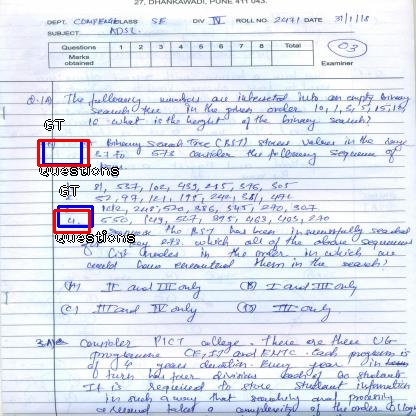 27, DHANKAWADI, PUNE 411 043.
DEPT. COMPENGG CLASS SE DIV IV ROLL NO. 2471 DATE 31/1/18
SUBJECT ADSL
Questions 1 2 3 4 5 6 7 8 Total
Marks obtained
03
Examiner
Q.1A) The following numbers are inserted into an empty binary
search tree in the given order 10, 1, 3, 5, 15, 12
16 what is the height of the binary search?
GT
Binary Search Tree (BST) stores values in the range
37 to 573 consider the following sequence of
Questions
81, 537, 102, 439, 285, 376, 305
52, 97, 121, 195, 242, 381, 472
GT
248, 520, 386, 345, 270, 307
4. 550, 149, 507, 395, 463, 402, 270
Questions
the BST has been successfully searched
key 273. which all of the above sequences
list nodes in the order in which we
could have encountered them in the search?
(A) II and III only (B) I and III only
(C) III and IV only (D) III only
3.A) Consider PICT college. There are three UG
programme CE, IT and ENTC. Each program is
of 4 years duration. Every year in
turn has four division each of 60 students
It is required to store student information
in such a way that searching and
complexity of the order